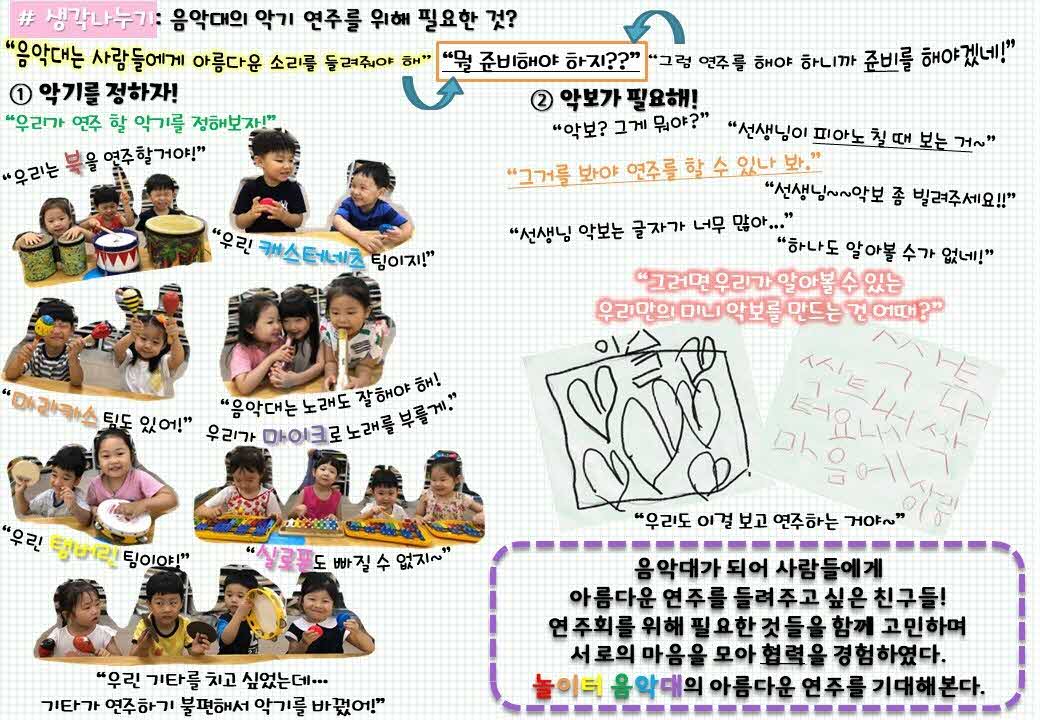 # 생각나누기: 음악대의 악기 연주를 위해 필요한 것?
“음악대는 사람들에게 아름다운 소리를 들려줘야 해”
“뭘 준비해야 하지??”
“그럼 연주를 해야 하니까 준비를 해야겠네!”
① 악기를 정하자!
“우리가 연주 할 악기를 정해보자!”
“우리는 북을 연주할거야!”
“우린 캐스터네츠 팀이지!”
“마라카스 팀도 있어!”
“음악대는 노래도 잘해야 해!
우리가 마이크로 노래를 부를게.”
“우린 탬버린 팀이야!”
“실로폰도 빠질 수 없지~”
“우린 기타를 치고 싶었는데...
기타가 연주하기 불편해서 악기를 바꿨어!”
② 악보가 필요해!
“악보? 그게 뭐야?”
“선생님이 피아노 칠 때 보는 거~”
“그거를 봐야 연주를 할 수 있나 봐.”
“선생님~~악보 좀 빌려주세요!!”
“선생님 악보는 글자가 너무 많아...”
“하나도 알아볼 수가 없네!”
“그러면 우리가 알아볼 수 있는
우리만의 미니 악보를 만드는 건 어때?”
“우리도 이걸 보고 연주하는 거야~”
음악대가 되어 사람들에게
아름다운 연주를 들려주고 싶은 친구들!
연주회를 위해 필요한 것들을 함께 고민하며
서로의 마음을 모아 협력을 경험하였다.
놀이터 음악대의 아름다운 연주를 기대해본다.